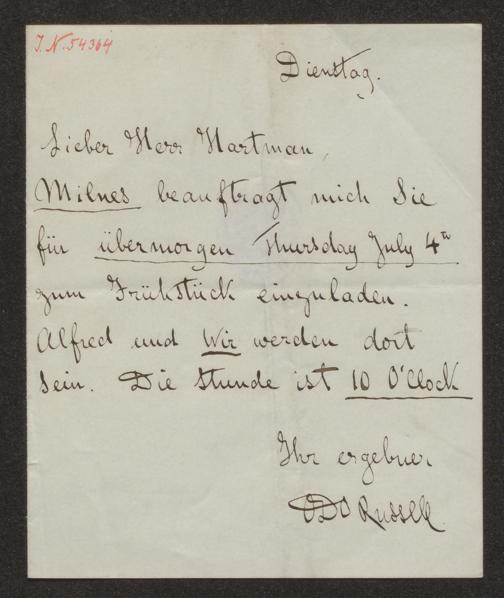 J.N. 54364
Dienstag.
Lieber Herr Hartman,
Milnes beauftragt mich Sie
für übermorgen Thursday July 4th
zum Frühstück einzuladen.
Alfred und Wir werden dort
sein. Die Stunde ist 10 O'Clock
Ihr ergebner
ODO Russell